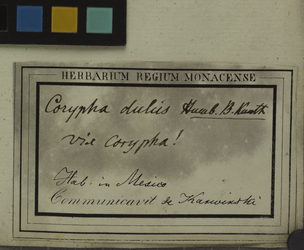 HERBARIUM REGIUM MONACENSE
Corypha dulcis Humb. B. Kunth
vix corypha!
Hab. in Mexico
Communicavit de Karwinski